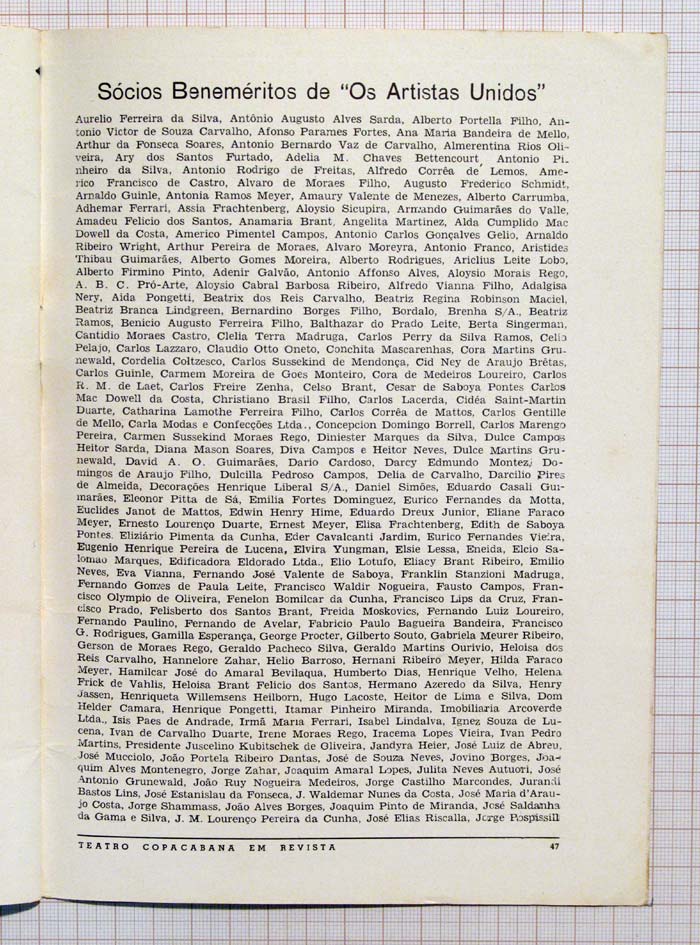 Sócios Beneméritos de "Os Artistas Unidos"
Aurelio Ferreira da Silva, Antônio Augusto Alves Sarda, Alberto Portella Filho, An-
tonio Victor de Souza Carvalho, Afonso Parames Fortes, Ana Maria Bandeira de Mello,
Arthur da Fonseca Soares, Antonio Bernardo Vaz de Carvalho, Almerentina Rios Oli-
veira, Ary dos Santos Furtado, Adelia M. Chaves Bettencourt, Antonio Pi-
nheiro da Silva, Antonio Rodrigo de Freitas, Alfredo Corrêa de Lemos, Ame-
rico Francisco de Castro, Alvaro de Moraes Filho, Augusto Frederico Schmidt,
Arnaldo Guinle, Antonia Ramos Meyer, Amaury Valente de Menezes, Alberto Carrumba,
Adhemar Ferrari, Assia Frachtenberg, Aloysio Sicupira, Armando Guimarães do Valle,
Amadeu Felicio dos Santos, Anamaria Brant, Angelita Martinez, Alda Cumplido Mac
Dowell da Costa, Americo Pimentel Campos, Antonio Carlos Gonçalves Gelio, Arnaldo
Ribeiro Wright, Arthur Pereira de Moraes, Alvaro Moreyra, Antonio Franco, Aristides
Thibau Guimarães, Alberto Gomes Moreira, Alberto Rodrigues, Ariclius Leite Lobo,
Alberto Firmino Pinto, Adenir Galvão, Antonio Affonso Alves, Aloysio Morais Rego,
A. B. C. Pró-Arte, Aloysio Cabral Barbosa Ribeiro, Alfredo Vianna Filho, Adalgisa
Nery, Aida Pongetti, Beatrix dos Reis Carvalho, Beatriz Regina Robinson Maciel,
Beatriz Branca Lindgreen, Bernardino Borges Filho, Bordalo, Brenha S/A., Beatriz
Ramos, Benicio Augusto Ferreira Filho, Balthazar do Prado Leite, Berta Singerman,
Cantidio Moraes Castro, Clelia Terra Madruga, Carlos Perry da Silva Ramos, Celio
Pelajo, Carlos Lazzaro, Claudio Otto Oneto, Conchita Mascarenhas, Cora Martins Gru-
newald, Cordelia Coltzesco, Carlos Sussekind de Mendonça, Cid Ney de Araujo Brêtas,
Carlos Guinle, Carmem Moreira de Goes Monteiro, Cora de Medeiros Loureiro, Carlos
R. M. de Laet, Carlos Freire Zenha, Celso Brant, Cesar de Saboya Pontes Carlos
Mac Dowell da Costa, Christiano Brasil Filho, Carlos Lacerda, Cidéa Saint-Martin
Duarte, Catharina Lamothe Ferreira Filho, Carlos Corrêa de Mattos, Carlos Gentille
de Mello, Carla Modas e Confecções Ltda., Concepcion Domingo Borrell, Carlos Marengo
Pereira, Carmen Sussekind Moraes Rego, Diniester Marques da Silva, Dulce Campos
Heitor Sarda, Diana Mason Soares, Diva Campos e Heitor Neves, Dulce Martins Gru-
newald, David A. O. Guimarães, Dario Cardoso, Darcy Edmundo Montez, Do-
mingos de Araujo Filho, Dulcilla Pedroso Campos, Delia de Carvalho, Darcilio Pires
de Almeida, Decorações Henrique Liberal S/A., Daniel Simões, Eduardo Casali Gui-
marães, Eleonor Pitta de Sá, Emilia Fortes Dominguez, Eurico Fernandes da Motta,
Euclides Janot de Mattos, Edwin Henry Hime, Eduardo Dreux Junior, Eliane Faraco
Meyer, Ernesto Lourenço Duarte, Ernest Meyer, Elisa Frachtenberg, Edith de Saboya
Pontes. Eliziário Pimenta da Cunha, Eder Cavalcanti Jardim, Eurico Fernandes Vieira,
Eugenio Henrique Pereira de Lucena, Elvira Yungman, Elsie Lessa, Eneida, Elcio Sa-
lomão Marques, Edificadora Eldorado Ltda., Elio Lotufo, Eliacy Brant Ribeiro, Emilio
Neves, Eva Vianna, Fernando José Valente de Saboya, Franklin Stanzioni Madruga,
Fernando Gomes de Paula Leite, Francisco Waldir Nogueira, Fausto Campos, Fran-
cisco Olympio de Oliveira, Fenelon Bomilcar da Cunha, Francisco Lips da Cruz, Fran-
cisco Prado, Felisberto dos Santos Brant, Freida Moskovics, Fernando Luiz Loureiro,
Fernando Paulino, Fernando de Avelar, Fabricio Paulo Bagueira Bandeira, Francisco
G. Rodrigues, Gamilla Esperança, George Procter, Gilberto Souto, Gabriela Meurer Ribeiro,
Gerson de Moraes Rego, Geraldo Pacheco Silva, Geraldo Martins Ourivio, Heloisa dos
Reis Carvalho, Hannelore Zahar, Helio Barroso, Hernani Ribeiro Meyer, Hilda Faraco
Meyer, Hamilcar José do Amaral Bevilaqua, Humberto Dias, Henrique Velho, Helena
Frick de Vahlis, Heloisa Brant Felicio dos Santos, Hermano Azeredo da Silva, Henry
Jassen, Henriqueta Willemsens Heilborn, Hugo Lacoste, Heitor de Lima e Silva, Dom
Helder Camara, Henrique Pongetti, Itamar Pinheiro Miranda, Imobiliaria Arcoverde
Ltda., Isis Paes de Andrade, Irmã Maria Ferrari, Isabel Lindalva, Ignez Souza de Lu-
cena, Ivan de Carvalho Duarte, Irene Moraes Rego, Iracema Lopes Vieira, Ivan Pedro
Martins, Presidente Juscelino Kubitschek de Oliveira, Jandyra Heier, José Luiz de Abreu,
José Mucciolo, João Portela Ribeiro Dantas, José de Souza Neves, Jovino Borges, Joa-
quim Alves Montenegro, Jorge Zahar, Joaquim Amaral Lopes, Julita Neves Autuori, José
Antonio Grunewald, João Ruy Nogueira Medeiros, Jorge Castilho Marcondes, Jurandi
Bastos Lins, José Estanislau da Fonseca, J. Waldemar Nunes da Costa, José Maria d'Arau-
jo Costa, Jorge Shammass, João Alves Borges, Joaquim Pinto de Miranda, José Saldanha
da Gama e Silva, J. M. Lourenço Pereira da Cunha, José Elias Riscalla, Jorge Pospissill
TEATRO COPACABANA EM REVISTA 47